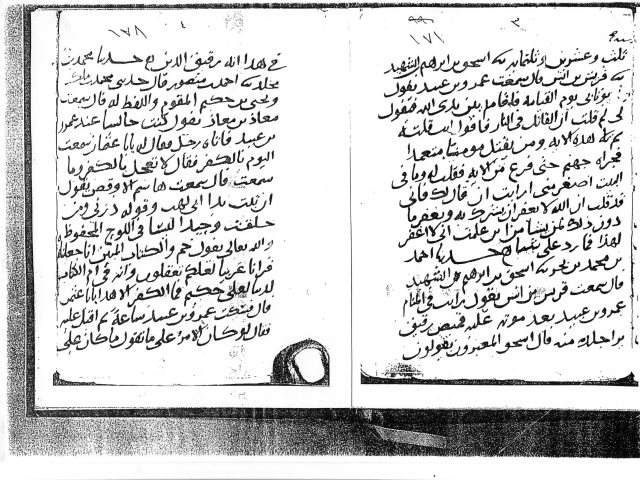 ٣
١٧١
ثلث وعشرين وثلثمايه نا اسحق بن ابراهيم الشهيد
نا قريش بن انس قال سمعت عمرو بن عبيد يقول
يؤتى بي يوم القيامة فاقام بين يدي الله فيقول
لي لم قلت ان القاتل في النار فاقول انت قلته
ثم تلا هذه الاية ومن يقتل مومنا متعمدا
فجزاه جهنم حتى فرغ من الاية فقلت له وما في
البيت اصغر مني ارايت ان قال لك فاني
قد قلت ان الله لا يغفر ان يشرك به ويغفر ما
دون ذلك لمن يشا من اين علمت اني لا اغفر
لهذا فما رد علي شيا حدثنا احمد
بن محمد نا اسحق بن ابراهيم الشهيد
قال سمعت قريش بن انس يقول رايت في المنام
عمرو بن عبيد بعد موته عليه قميص رقيق
منه قال اسحق المعبرون يقولون
٤
١٧٨
في هذا انه رقيق الدين حدثنا محمد بن
مخلد نا احمد بن منصور قال حدثني محمد
ويحيى بن حكيم المقوم واللفظ له قال سمعت
معاذ بن معاذ يقول كنت جالسا عند عمرو
بن عبيد فاتاه رجل فقال له يابا عثمان سمعت
اليوم بالكفر فقال لا تعجل بالكفر وما
سمعت قال سمعت هاشم الاوقص يقول
ان تبت يدا ابي لهب وقوله ذرني ومن
خلقت وحيدا ليستا في اللوح المحفوظ
والله تعالى يقول حم والكتاب المبين انا جعلناه
قرانا عربيا لعلكم تعقلون وانه في ام الكتاب
لدينا لعلي حكيم فما الكفر الا هذا يابا عثمن
قال فسكت عمرو بن عبيد ساعة ثم اقبل عليه
فقال لو كان الامر على ما تقول ما كان على